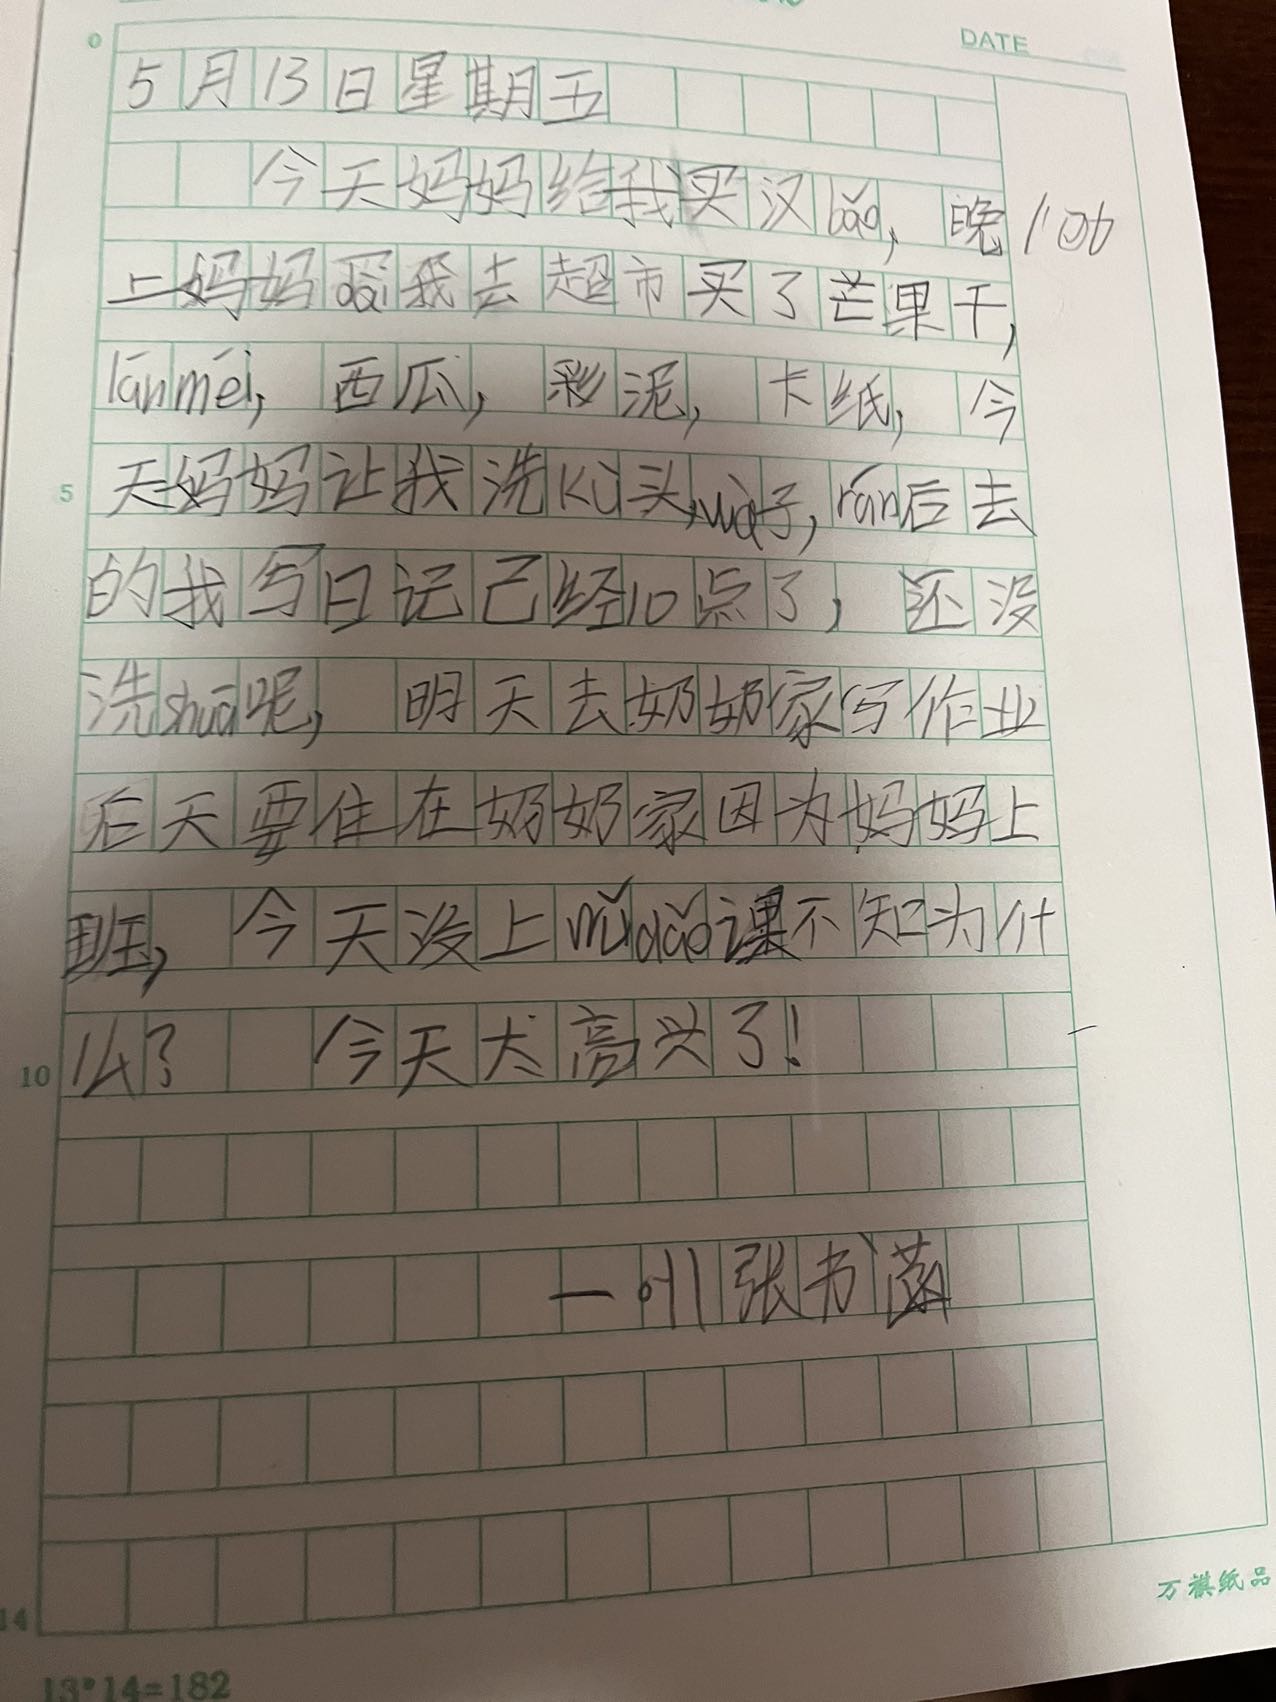 DATE
0
5月13日星期五
今天妈妈给我买汉bǎo，晚
1'06
上妈妈dài我去超市买了芒果干，
lánméi，西瓜，彩泥，卡纸，今
5
天妈妈让我洗kù头，wà子，rán后去
的我写日记已经10点了，还没
洗shuā呢，明天去奶奶家写作业
后天要住在奶奶家因为妈妈上
班，今天没上wǔdǎo课不知为什
10
么？今天太高兴了！
张书菡
14
万祺纸品
13*14=182